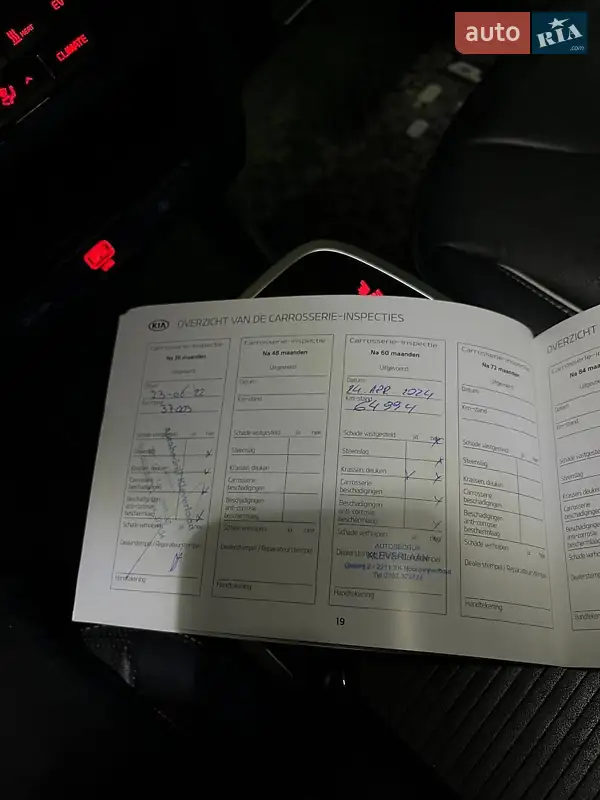 EV
HEAT
CLIMATE
auto RIA
.com
KIA OVERZICHT VAN DE CARROSSERIE-INSPECTIES
Carrosserie-inspectie
Na 36 maanden
Uitgevoerd:
Datum
23-06-22
Km-stand
37003
Schade vastgesteld: ja nee
Steenslag
Krassen, deuken
Carrosserie
beschadigingen
Beschadigingen
anti-corrosie
beschermlaag
Schade verholpen
Dealerstempel / Reparateurstempel
Handtekening
Carrosserie-inspectie
Na 48 maanden
Uitgevoerd:
Datum:
Km-stand:
Schade vastgesteld: ja nee
Steenslag
Krassen, deuken
Carrosserie
beschadigingen
Beschadigingen
anti-corrosie
beschermlaag
Schade verholpen
Dealerstempel / Reparateurstempel
Handtekening
Carrosserie-inspectie
Na 60 maanden
Uitgevoerd:
Datum:
24 APR. 2024
Km-stand
64994
Schade vastgesteld: ja nee
Steenslag
Krassen, deuken
Carrosserie
beschadigingen
Beschadigingen
anti-corrosie
beschermlaag
Schade verholpen
AUTOBEDRIJF
KLEVERLAAN
Handtekening
Carrosserie-inspectie
Na 72 maanden
Uitgevoerd:
Datum:
Km-stand:
Schade vastgesteld: ja nee
Steenslag
Krassen, deuken
Carrosserie
beschadigingen
Beschadigingen
anti-corrosie
beschermlaag
Schade verholpen
Dealerstempel / Reparateurstempel
Handtekening
19
OVERZICHT
Carrosserie-in
Na 84 maa
Uitgevoerd:
Datum:
Km-stand:
Schade vastgesteld:
Steenslag
Krassen, deuken
Carrosserie
beschadigingen
Beschadigingen
anti-corrosie
beschermlaag
Schade verholpen
Dealerstempel
Handtekening